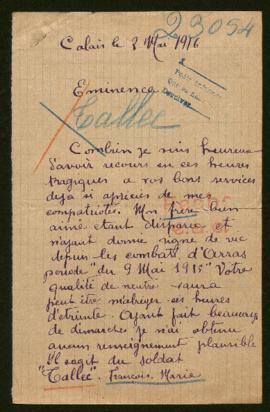 23094
Calais le 3 Mai 1916
Eminence
Tallec
Combien je suis heureux
d'avoir recours en ces heures
tragiques a vos bons services
deja si apreciés de mes
compatriotes. Mon frère bien
aimé etant disparu et
n'ayant donné signe de vie
depuis les combats d'Arras
periode "du 9 Mai 1915" Votre
qualité de neutre saura
peut être m'abreger ces heures
d'étreinte. Ayant fait beaucoup
de dimarches je n'ai obtenu
aucun renseignement plausible
Il s'agit du soldat
"Tallec" François Marie